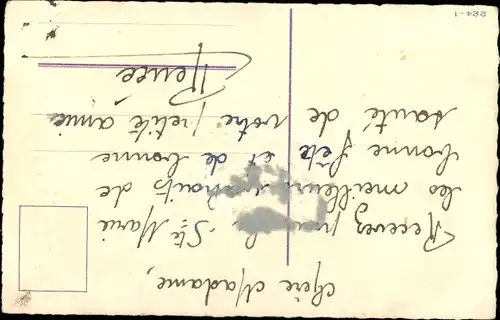 Chère Madame,
Recevez pour la Ste Marie
les meilleurs souhaits de
bonne fête et de bonne
santé de votre petite amie
Renée